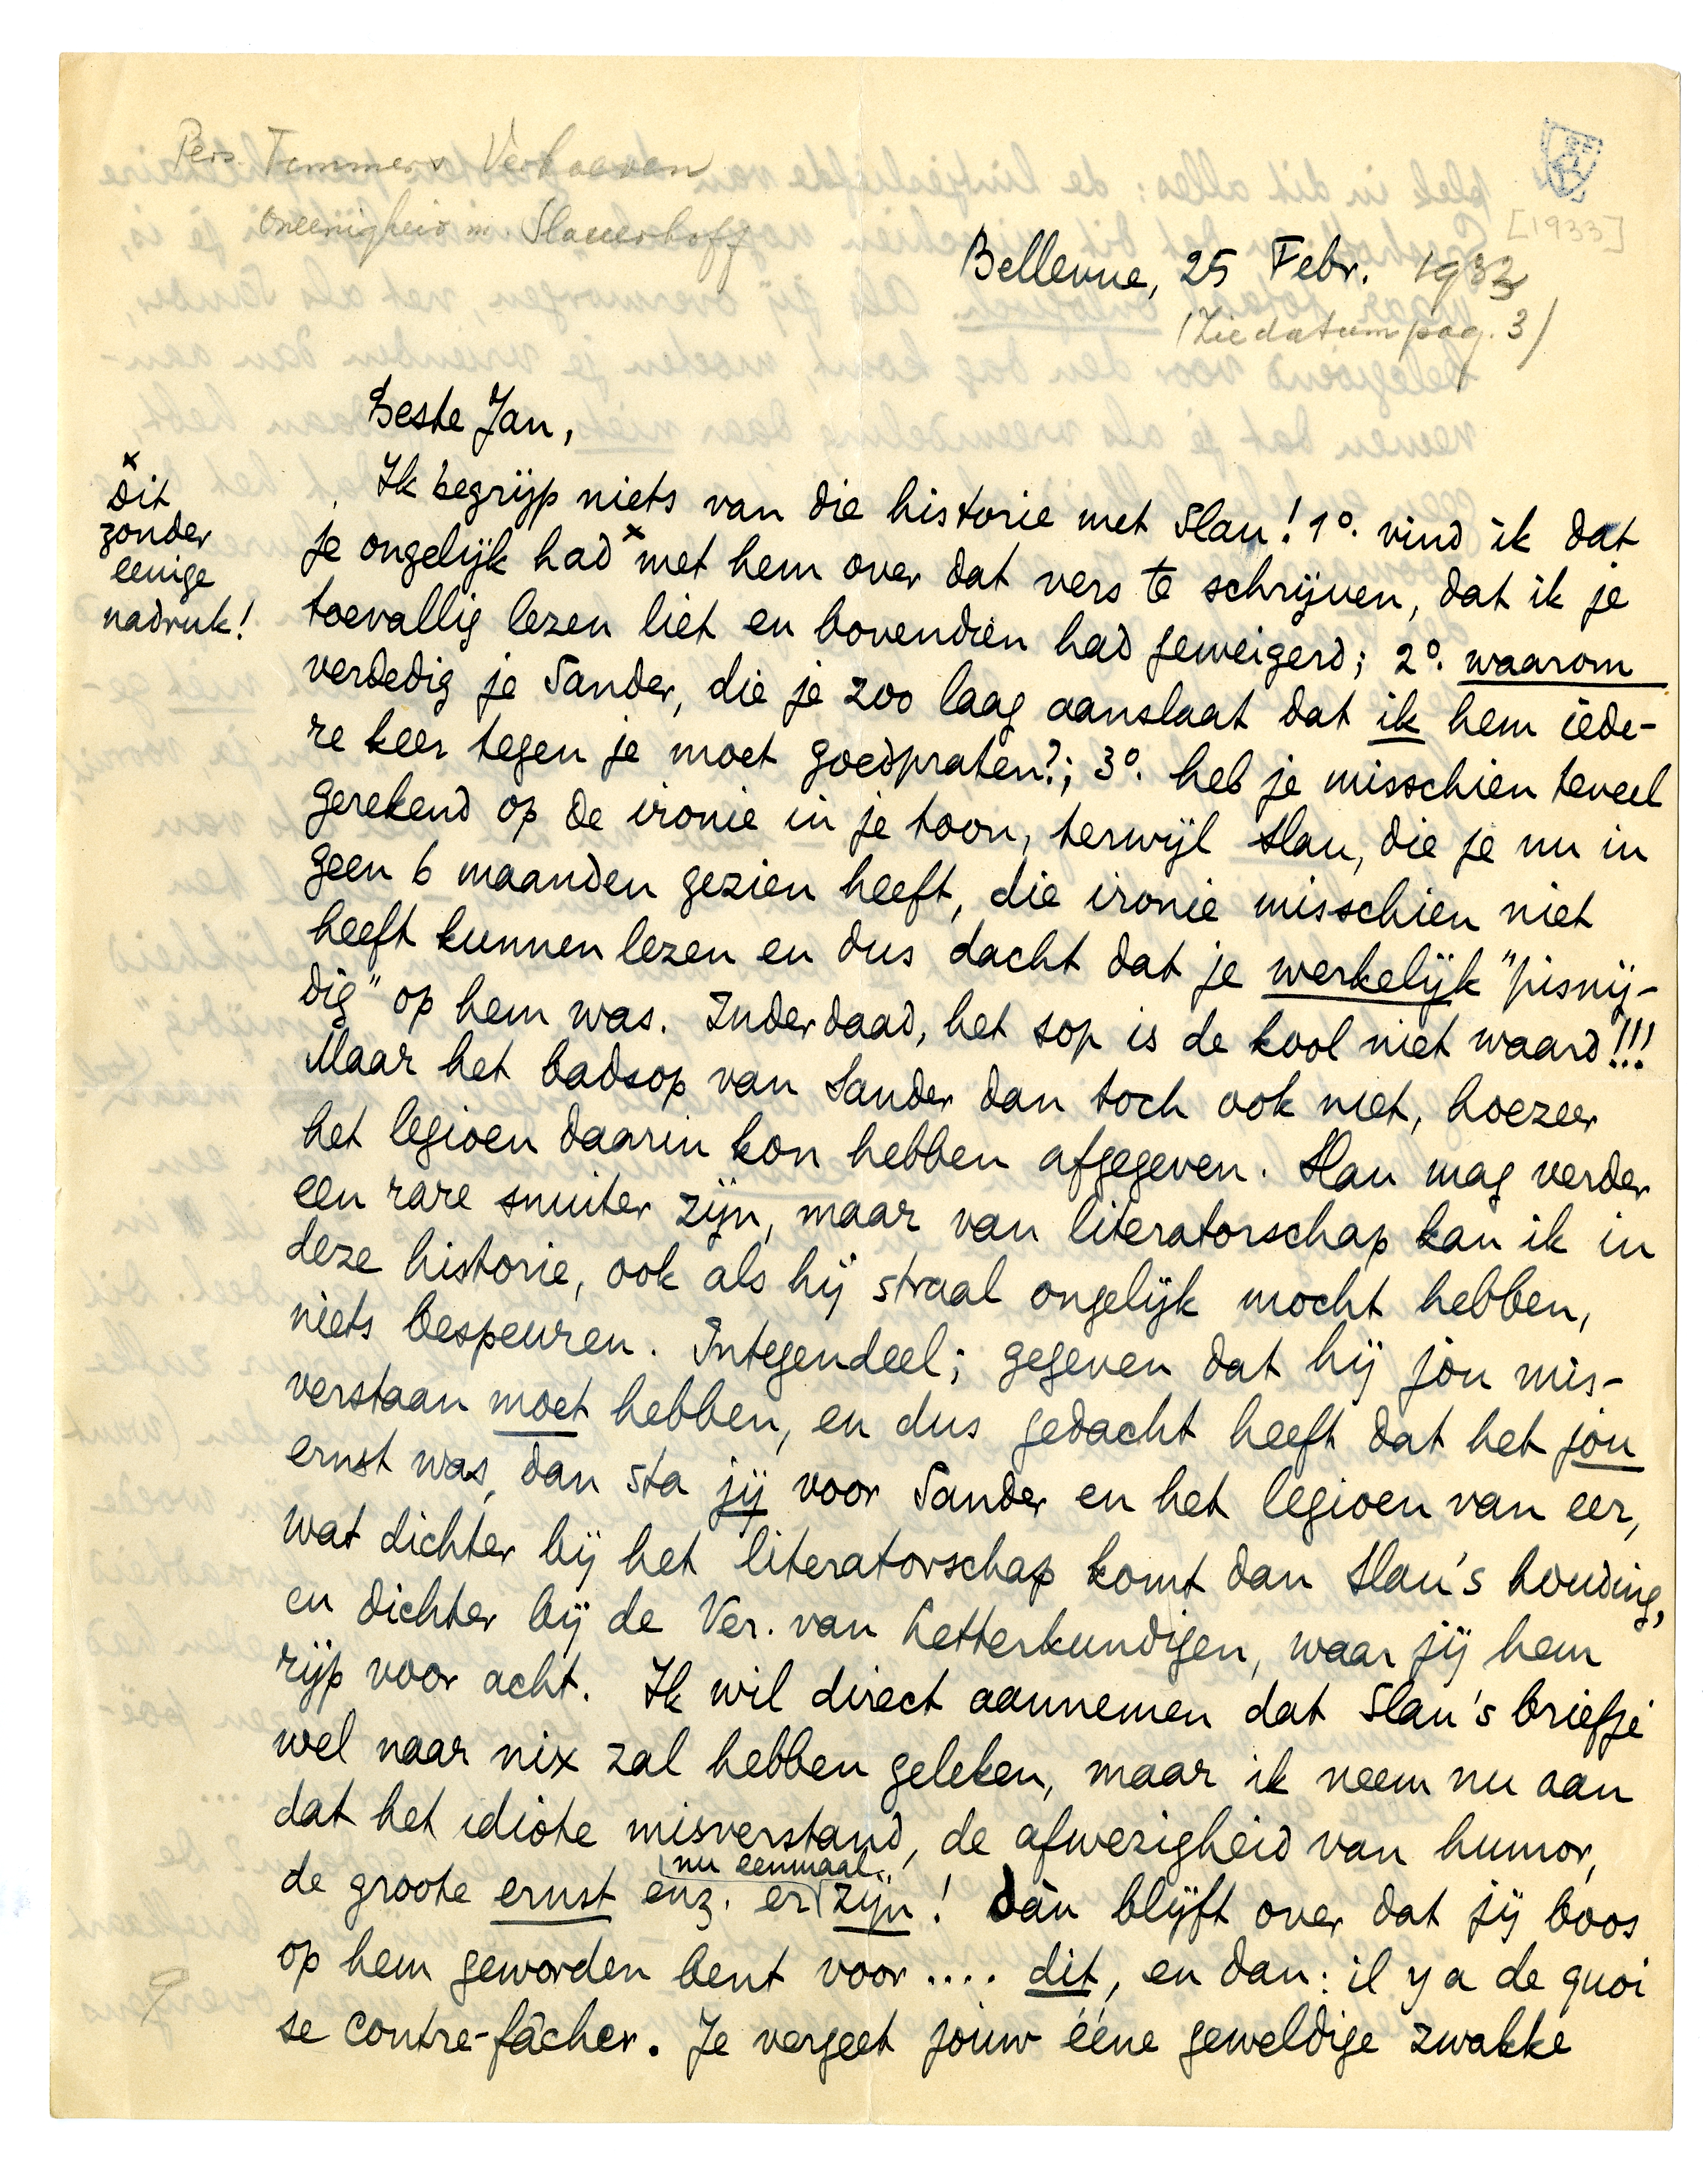 Pers. Timmers Verhoeven
oneenigheid m. Slauerhoff
[1933]
Bellevue, 25 Febr. 1933
(Zie datum pag. 3)
Beste Jan,
x
dit
zonder
eenige
nadruk!
Ik begrijp niets van die historie met Slau! 1º. vind ik dat
je ongelijk had x met hem over dat vers te schrijven, dat ik je
toevallig lezen liet en bovendien had geweigerd; 2º. waarom
verdedig je Sander, die je zoo laag aanslaat dat ik hem iede-
re keer tegen je moet goedpraten?; 3º. heb je misschien teveel
gerekend op de ironie in je toon, terwijl Slau, die je nu in
geen 6 maanden gezien heeft, die ironie misschien niet
heeft kunnen lezen en dus dacht dat je werkelijk "pisnij-
dig" op hem was. Inderdaad, het sop is de kool niet waard!!!
Maar het badsop van Sander dan toch ook niet, hoezeer
het legioen daarin kon hebben afgegeven. Slau mag verder
een rare snuiter zijn, maar van literatorschap kan ik in
deze historie, ook als hij straal ongelijk mocht hebben,
niets bespeuren. Integendeel; gegeven dat hij jou mis-
verstaan moet hebben, en dus gedacht heeft dat het jou
ernst was, dan sta jij voor Sander en het legioen van eer,
wat dichter bij het literatorschap komt dan Slau's houding,
en dichter bij de Ver. van Letterkundigen, waar jij hem
rijp voor acht. Ik wil direct aannemen dat Slau's briefje
wel naar nix zal hebben geleken, maar ik neem nu aan
dat het idiote misverstand, de afwezigheid van humor,
de groote ernst enz. er nu eenmaal zijn! Dàn blijft over dat jij boos
op hem geworden bent voor .... dit, en dan: il y a de quoi
se contre-fâcher. Je vergeet jouw ééne geweldige zwakke
9